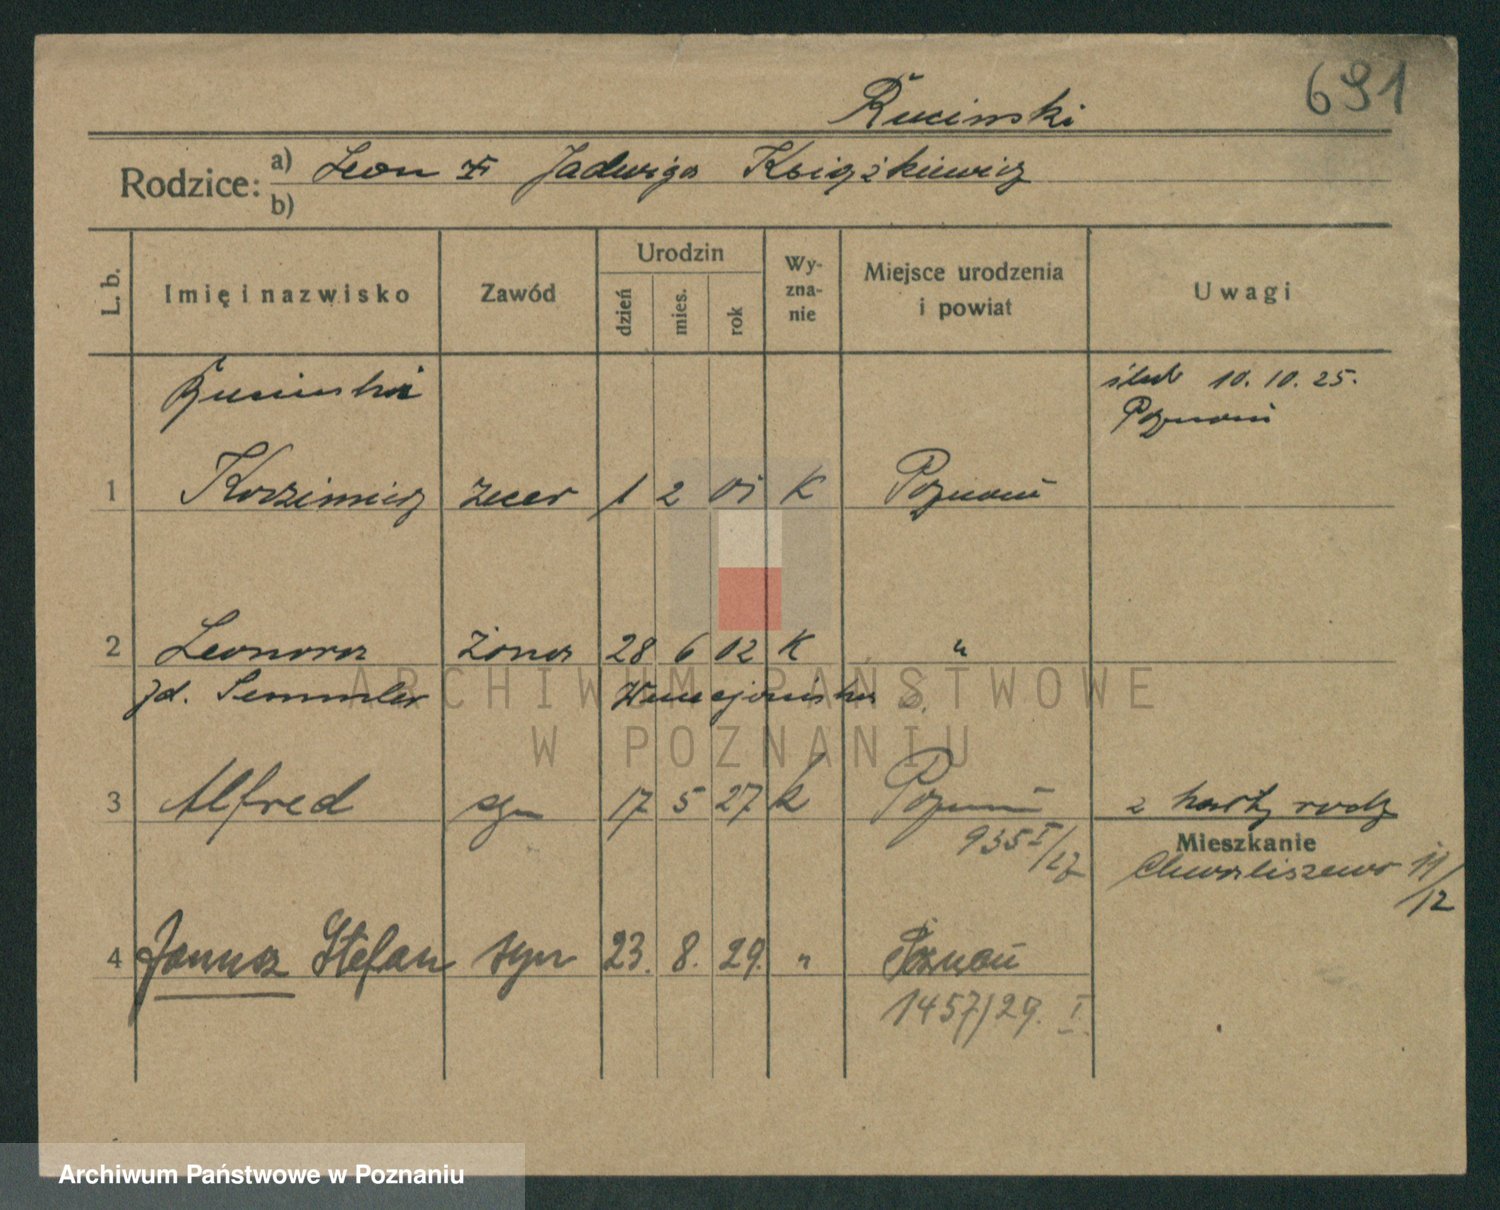 691
Ruciński
Rodzice: a) Leon Jadwiga Książkiewicz
b)
L. b. Imię i nazwisko Zawód Urodzin dzień mies. rok Wy-zna-nie Miejsce urodzenia i powiat Uwagi
Ruciński ślub 10. 10. 25.
Poznań
1 Kazimierz zecer 1 2 05 K Poznań
2 Leonora żona 28 6 02 K "
zd. Semmler
ARCHIWUM PAŃSTWOWE
W POZNANIU
3 Alfred syn 17 5 27 k Poznań z karty rodz
935 I/27 Mieszkanie
Chwaliszewo 11/12
4 Janusz Stefan syn 23. 8. 29. " Poznań
1457/29. I
Archiwum Państwowe w Poznaniu